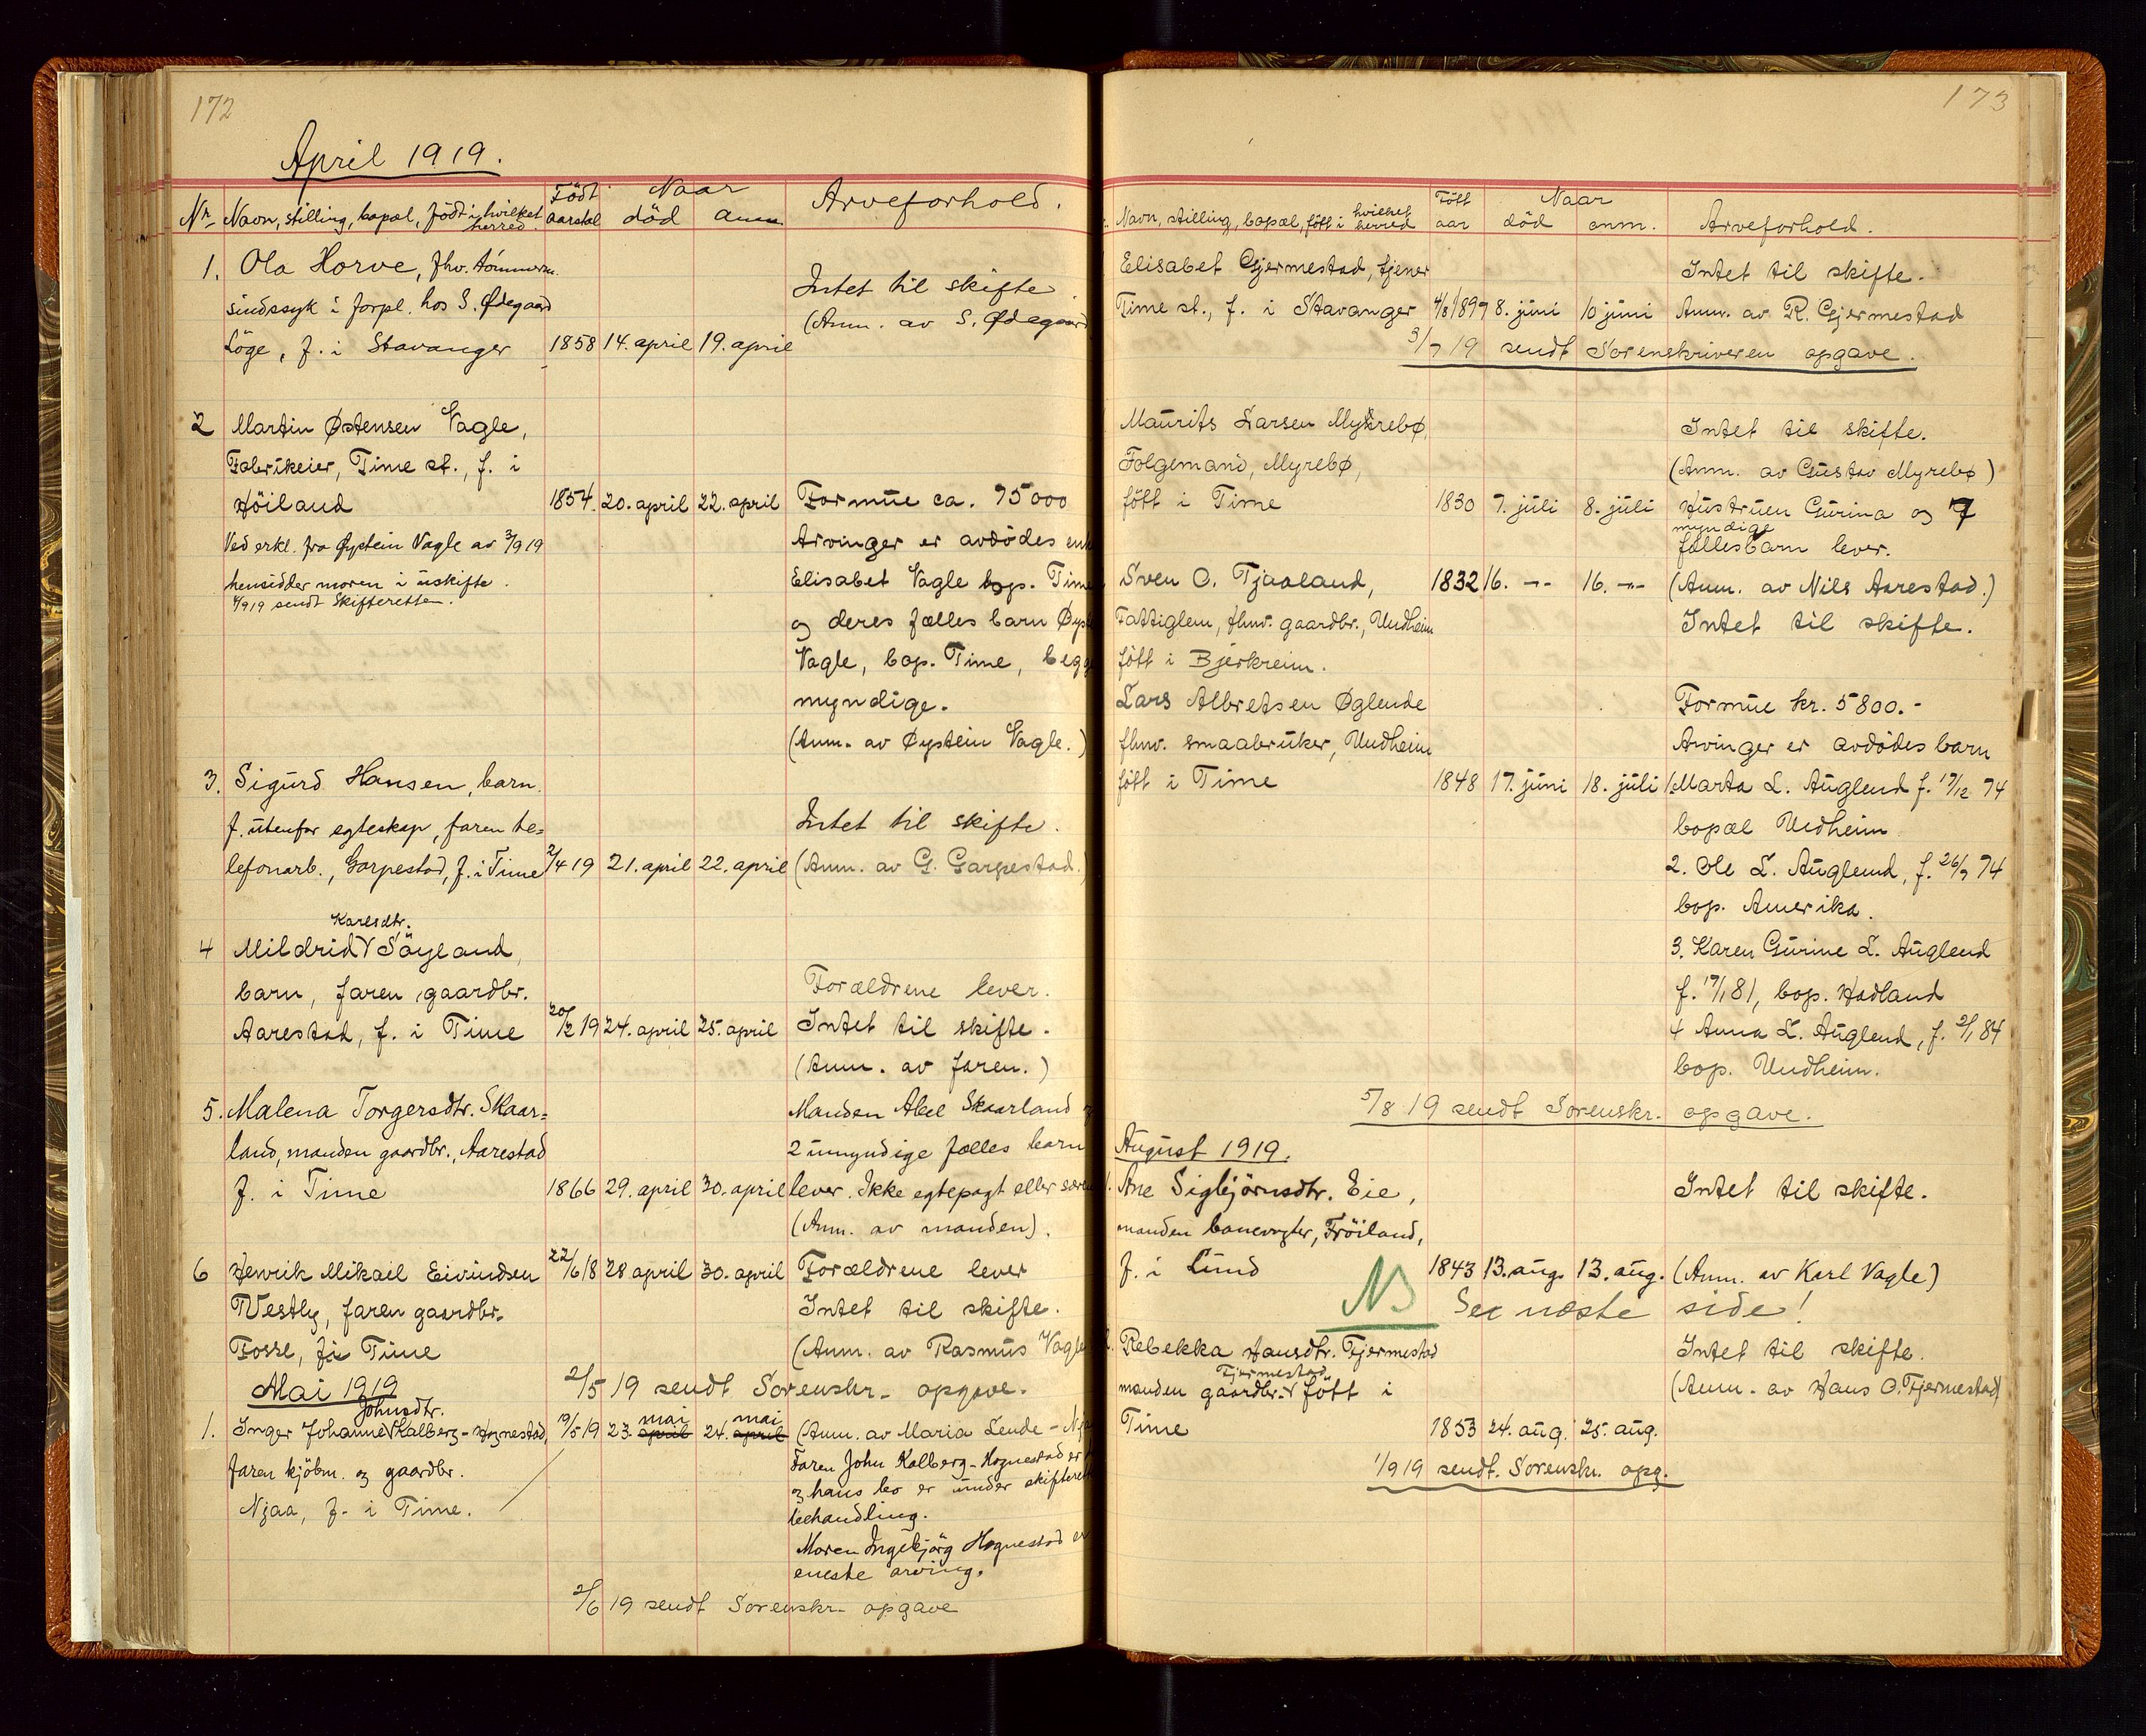 172
April 1919.
Nr. Navn, stilling, bopæl, født i hvilket herred. Født aarstal Naar død anm. Arveforhold.
1. Ola Horve, fhv. tömmerm.
sindssyk i forpl. hos S. Ødegaard Intet til skifte.
Löge, f. i Stavanger 1858 14. april 19. april (Anm. av S. Ødegaard
2 Martin Østensen Vagle,
Fabrikeier, Time st., f. i
Höiland 1854. 20. april 22. april Formue ca. 75000
Ved erkl. fra Øystein Vagle av 3/9 19 Arvinger er avdödes enke
hensidder moren i uskifte. Elisabet Vagle bop. Time
4/9 19 sendt Skifteretten.
og deres fælles barn Øystein
Vagle, bop. Time, begge
myndige.
(Anm. av Øystein Vagle.)
3. Sigurd Hansen, barn.
f. utenfor egteskap, faren te= Intet til skifte.
lefonarb., Garpestad, f. i Time 2/4 19 21. april 22. april (Anm. av G. Garpestad.)
Karlsdtr.
4 Mildrid V Söyland,
barn, faren gaardbr. Forældrene lever.
Aarestad, f. i Time 20/2 19 24. april 25. april Intet til skifte.
(Anm. av faren.)
5. Malena Torgersdtr. Skaar= Manden Abel Skaarland
land, manden gaardbr., Aarestad 2 umyndige fælles barn
f. i Time 1866 29. april 30. april lever. Ikke egtepagt eller
(Anm. av manden).
6 Henrik Mikael Eivindsen 22/6 18 28 april 30. april Forældrene lever
Westly, faren gaardbr. Intet til skifte.
Fosse, f. i Time (Anm. av Rasmus Vagle
Mai 1919 2/5 19 sendt Sorenskr. opgave.
Johnsdtr. mai mai
1. Inger Johanne V Kalberg-Hognestad, 19/5 19 23. april 24. april (Anm. av Maria Lende -
faren kjöbm. og gaardbr. Faren John Kalberg-Hognestad er
Njaa, f. i Time. og hans bo er under skifteret
behandling.
Moren Ingebjörg Hognestad er
eneste arving.
2/6 19 sendt Sorenskr. opgave
173
Navn, stilling, bopæl, född i hvilket herred Född aar Naar död anm. Arveforhold.
Elisabet Gjermestad, tjener Intet til skifte.
Time st., f. i Stavanger 4/8 1899 8. juni 10 juni Anm. av R. Gjermestad
3/7 19 sendt Sorenskriveren opgave.
Maurits Larsen Mykrebø, Intet til skifte.
Folgemand, Myrebø, (Anm. av Gustav Myrebø)
född i Time 1830 7. juli 8. juli Hustruen Gurina og 7
myndige
fællesbarn lever.
Sven O. Tjaaland, 1832 16. -"- 16. -"- (Anm. av Nils Aarestad.)
Fattiglem, fhnv. gaardbr., Undheim Intet til skifte.
född i Bjerkreim.
Lars Albretsen Øglende Formue kr. 5800.-
fhnv. smaabruker, Undheim Arvinger er avdödes barn
född i Time 1848 17. juni 18. juli 1. Marta L. Auglend f. 17/12 74
bopæl Undheim
2. Ole L. Auglend, f. 26/7 74
bop. Amerika.
3. Karen Gurine L. Auglend
f. 17/1 81, bop. Hadland
4 Anna L. Auglend, f. 2/1 84
bop. Undheim.
5/8 19 sendt Sorenskr. opgave.
August 1919.
1. Ane Sigbjörnsdtr. Eie, Intet til skifte.
manden banevogter, Fröiland,
f. i Lund 1843 13. aug. 13. aug. (Anm. av Karl Vagle)
NB Se næste side!
Rebekka Hansdtr. Fjermestad Intet til skifte.
Fjermestad
manden gaardbr. V född i (Anm. av Hans O. Fjermestad
Time 1853 24. aug. 25. aug.
1/9 19 sendt. Sorenskr. opg.